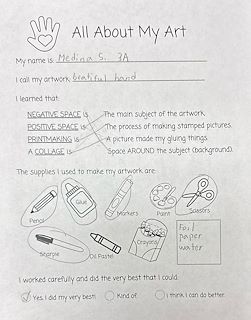 All About My Art
My name is: Medina S. 3A
I call my artwork beatiful hand
I learned that:
NEGATIVE SPACE is The main subject of the artwork.
POSITIVE SPACE is The process of making stamped pictures.
PRINTMAKING is A picture made my gluing things.
A COLLAGE is Space AROUND the subject (background).
The supplies I used to make my artwork are:
Pencil Glue Markers Paint Scissors
Sharpie Oil Pastel Crayons Foil
paper
water
I worked carefully and did the very best that I could:
Yes. I did my very best! Kind of. I think I can do better.